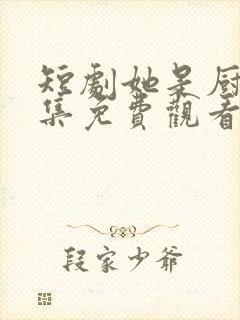 短劇她是廚
集免費觀看
段家少爺